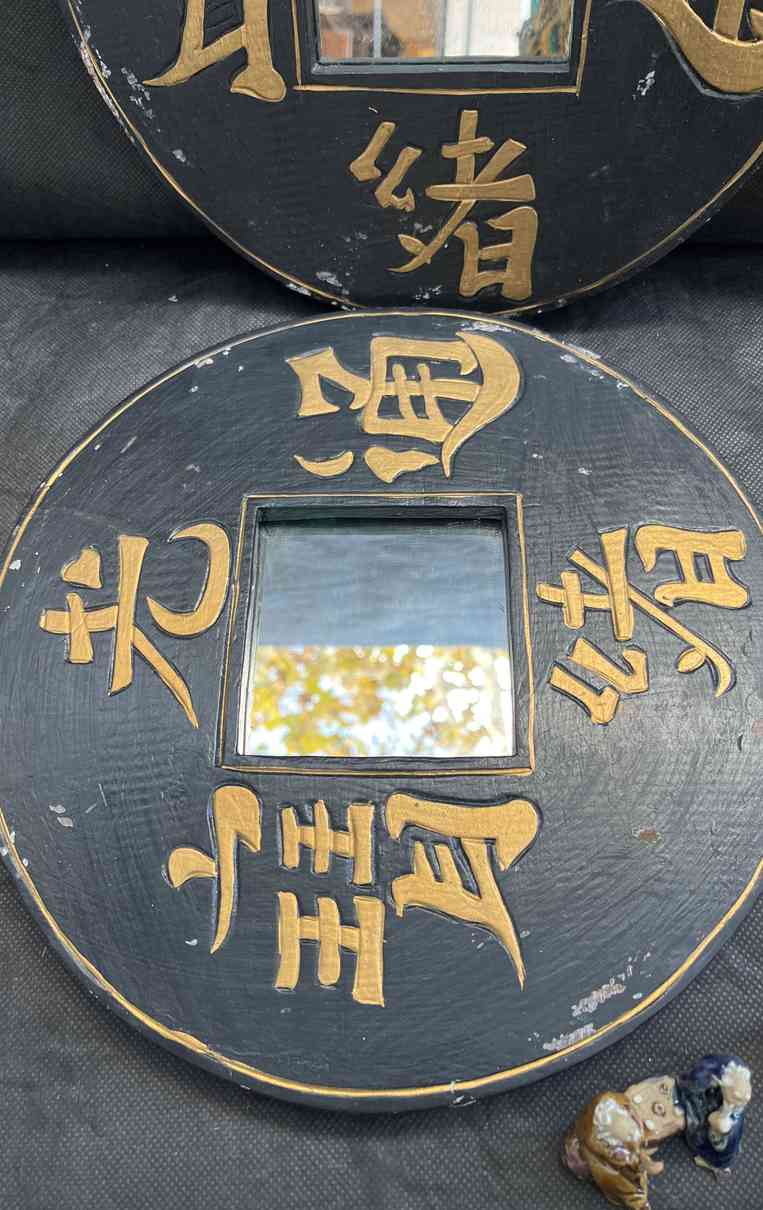 緒
光
緒
通
寶